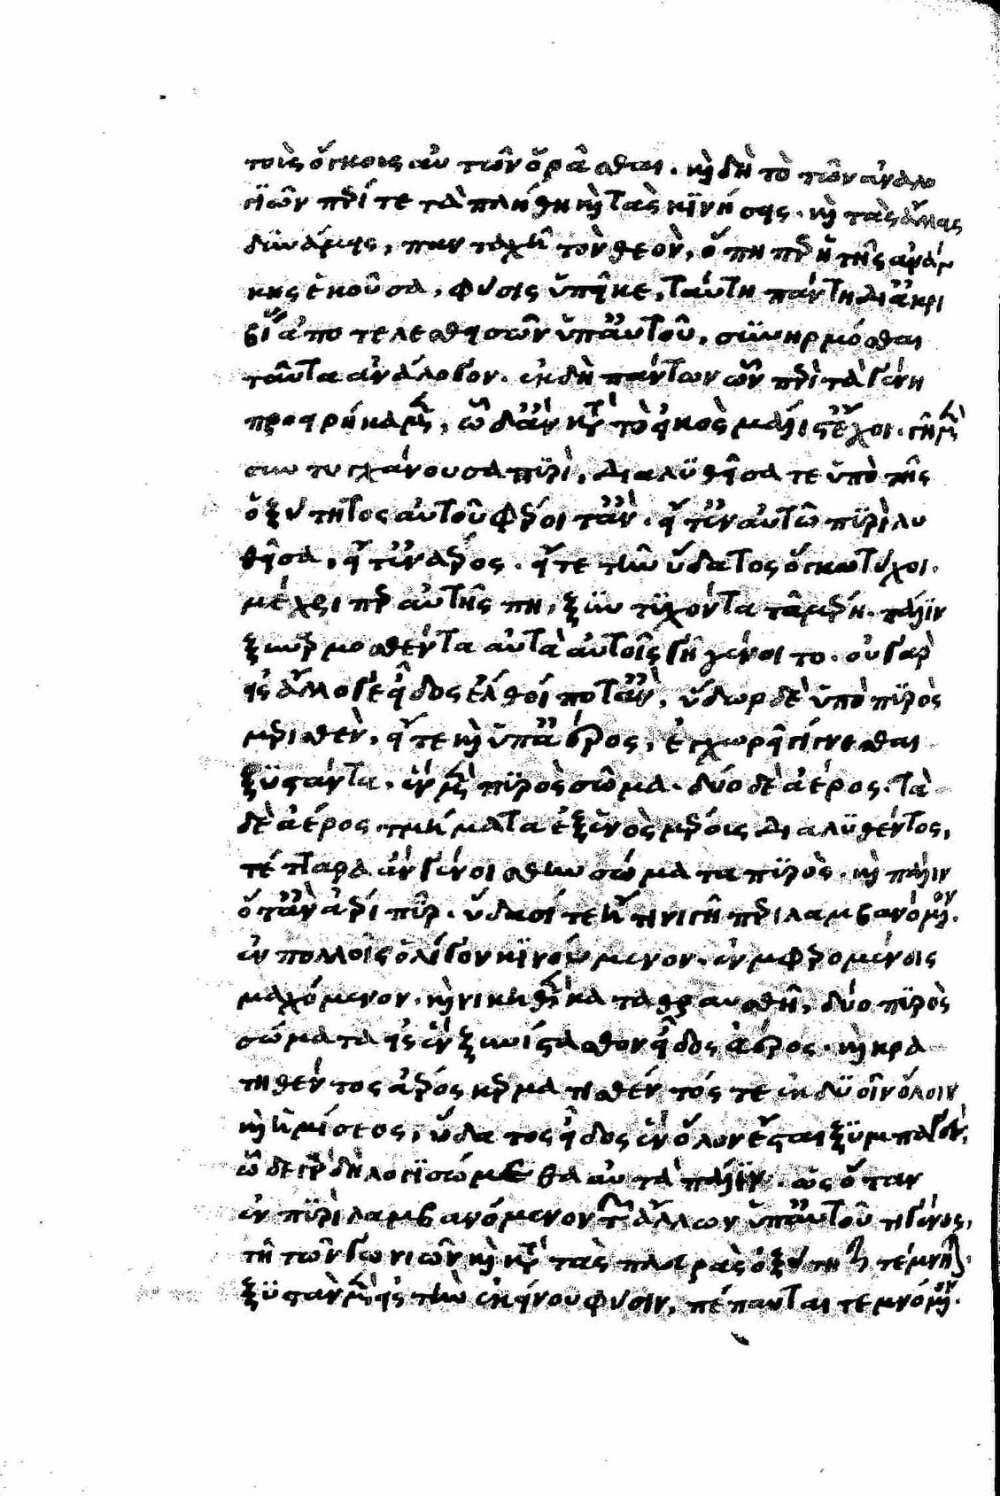 τοὺς ὄγκους αὐτῶν ὁρᾶσθαι. καὶ δὴ τὸ τῶν ἀναλο
γιῶν περί τε τὰ πλήθη καὶ τὰς κινήσεις. καὶ τὰς ἄλλας
δυνάμεις, πανταχῆ τὸν θεὸν, ὅπη περ ἡ τῆς ἀνάγ
κης ἑκοῦσα, φύσις ὑπεῖκε, ταύτη πάντη δι' ἀκρι
βείας ἀποτελεσθεισῶν ὑπ' αὐτοῦ, συνηρμόσθαι
ταῦτα ἀνάλογον. ἐκ δὴ πάντων ὧν περὶ τὰ γένη
προειρήκαμεν, ὧδ' ἂν κατὰ τὸ εἰκὸς μάλιστ' ἔχοι. γῆ μὲν
συντυγχάνουσα πυρὶ, διαλυθεῖσά τε ὑπὸ τῆς
ὀξύτητος αὐτοῦ φέροιτ' ἂν. εἴτ' ἐν αὐτῶ πυρὶ λυ
θεῖσα, εἴτ' ἐν ἀέρος. εἴτε ἐν ὕδατος ὄγκω τύχοι.
μέχρι περ αὐτῆς πη, ξυντυχόντα τὰ μέρη. πάλιν
ξυναρμοσθέντα αὐτὰ αὑτοῖς γῆ γένοιτο. οὐ γὰρ
εἰς ἄλλο γε εἶδος ἔλθοι ποτ' ἂν, ὕδωρ δὲ ὑπὸ πυρὸς
μερισθὲν, εἴτε καὶ ὑπ' ἀέρος, ἐγχωρεῖ γίγνεσθαι
ξυστάντα. ἓν μὲν πυρὸς σῶμα. δύο δὲ ἀέρος. τὰ
δὲ ἀέρος τμήματα ἐξ ἑνὸς μέρους διαλυθέντος,
δύ' ἂν γενοίσθην σώματα πυρός. καὶ πάλιν
ὅταν ἀέρι πῦρ. ὕδασί τε ἤ τινι γῆ περιλαμβανόμενον.
ἐν πολλοῖς ὀλίγον κινούμενον. ἐν φερομένοις
μαχόμενον. καὶ νικηθὲν καταθραυσθῆ, δύο πυρὸς
σώματα εἰς ἓν ξυνίστασθον εἶδος ἀέρος. καὶ κρα
τηθέντος ἀέρος κερματισθέντος τε ἐκ δυοῖν ὅλοιν
καὶ ἡμίσεος, ὕδατος εἶδος ἓν ὅλον ἔσται ξυμπαγὲν,
ὧδε γὰρ δὴ λογισώμεθα αὐτὰ πάλιν. ὡς ὅταν
ἐν πυρὶ λαμβανόμενον τῶν ἄλλων ὑπ' αὐτοῦ τι γένος,
τῆ τῶν γωνιῶν καὶ κατὰ τὰς πλευρὰς ὀξύτητι τέμνηται.
ξυστὰν μὲν εἰς τὴν ἐκείνου φύσιν, πέπαυται τεμνόμενον.